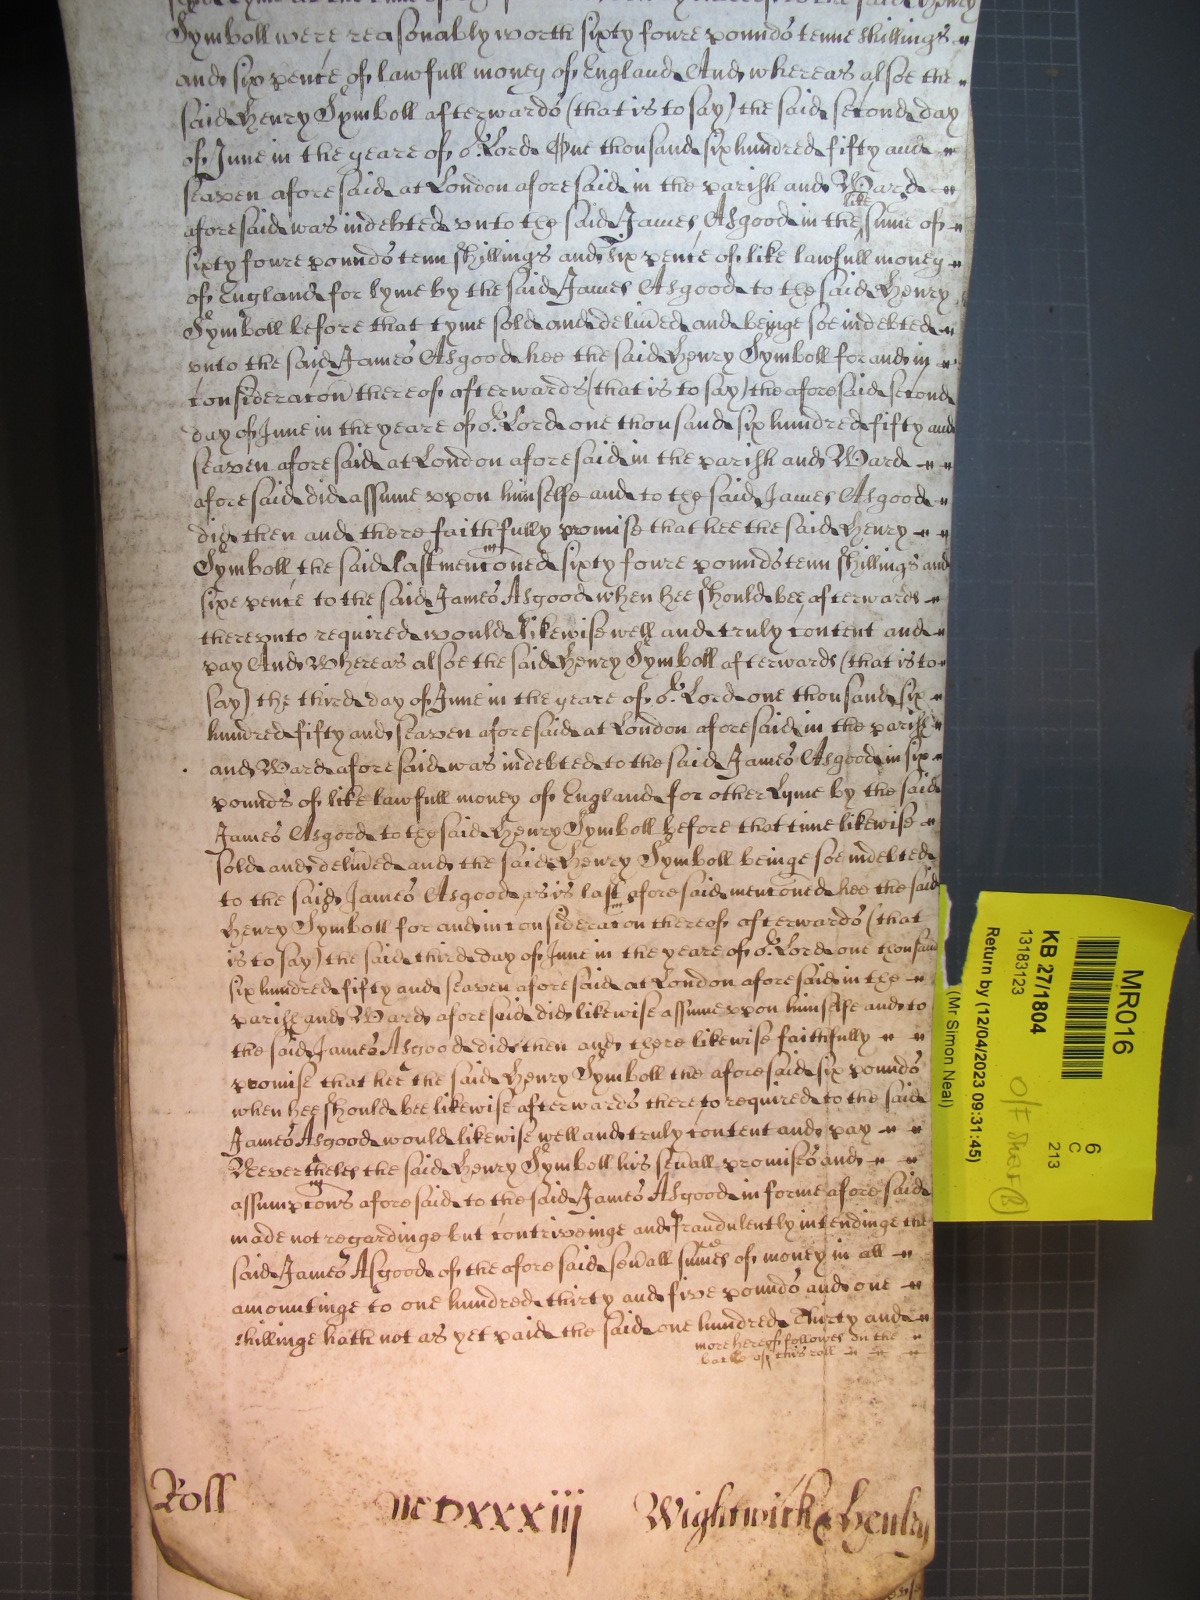 Symboll were reasonably worth sixty foure pounds tenne shillings
and six pence of lawfull money of England And whereas alsoe the
said Henry Symboll afterwards (that is to say) the said second day
of June in the yeare of or Lord One thousand six hundred fifty and
seaven aforesaid at London aforesaid in the parish and Ward
aforesaid was indebted vnto the said James Asgood in the like sume of
sixty foure pounds tenn shillings and six pence of like lawfull money
of England for lyme by the said James Asgood to the said Henry
Symboll before that tyme sold and delivred and beinge soe indebted
vnto the said James Asgood hee the said Henry Symboll for and in
consideracon thereof afterwards (that is to say) the aforesaid second
day of June in the yeare of or Lord one thousand six hundred fifty and
seaven aforesaid at London aforesaid in the parish and Ward
aforesaid did assume vpon himselfe and to the said James Asgood
did then and there faithfully promise that hee the said Henry
Symboll the said last mencioned sixty foure pounds tenn shillings and
sixe pence to the said James Asgood when hee should bee afterwards
therevnto required would likewise well and truly content and
pay And Whereas alsoe the said Henry Symboll afterwards (that is to
say) the third day of June in the yeare of or Lord one thousand six
hundred fifty and seaven aforesaid at London aforesaid in the parish
and Ward aforesaid was indebted to the said James Asgood in six
pounds of like lawfull money of England for other Lyme by the said
James Asgood to the said Henry Symboll before that time likewise
sold and delivred and the said Henry Symboll beinge soe indebted
to the said James Asgood as is last aforesaid mencioned hee the said
Henry Symboll for and in consideracon thereof afterwards (that
is to say) the said third day of June in the yeare of or Lord one thousand
six hundred fifty and seaven aforesaid at London aforesaid in the
parish and Ward aforesaid did likewise assume vpon himselfe and to
the said James Asgood did then and there likewise faithfully
promise that hee the said Henry Symboll the aforesaid six pounds
when hee should bee likewise afterwards thereto required to the said
James Asgood would likewise well and truly content and pay
Neverthelesse the said Henry Symboll his sevall promises and
assumpcons aforesaid to the said James Asgood in forme aforesaid
made not regardinge but contriveinge and fraudulently intendinge the
said James Asgood of the aforesaid sevall sumes of money in all
amountinge to one hundred thirty and five pounds and one
shillinge hath not as yet paid the said one hundred Thirty and
more hereof followes on the
backe of this roll
Roll MDXXXIII Wightwick & Henley
MR016
KB 27/1804
13183123
Return by (12/04/2023 09:31:45)
(Mr Simon Neal)
6
C
213